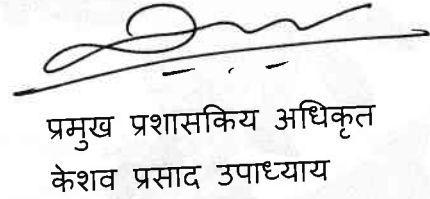 प्रमुख प्रशासकिय अधिकृत
केशव प्रसाद उपाध्याय